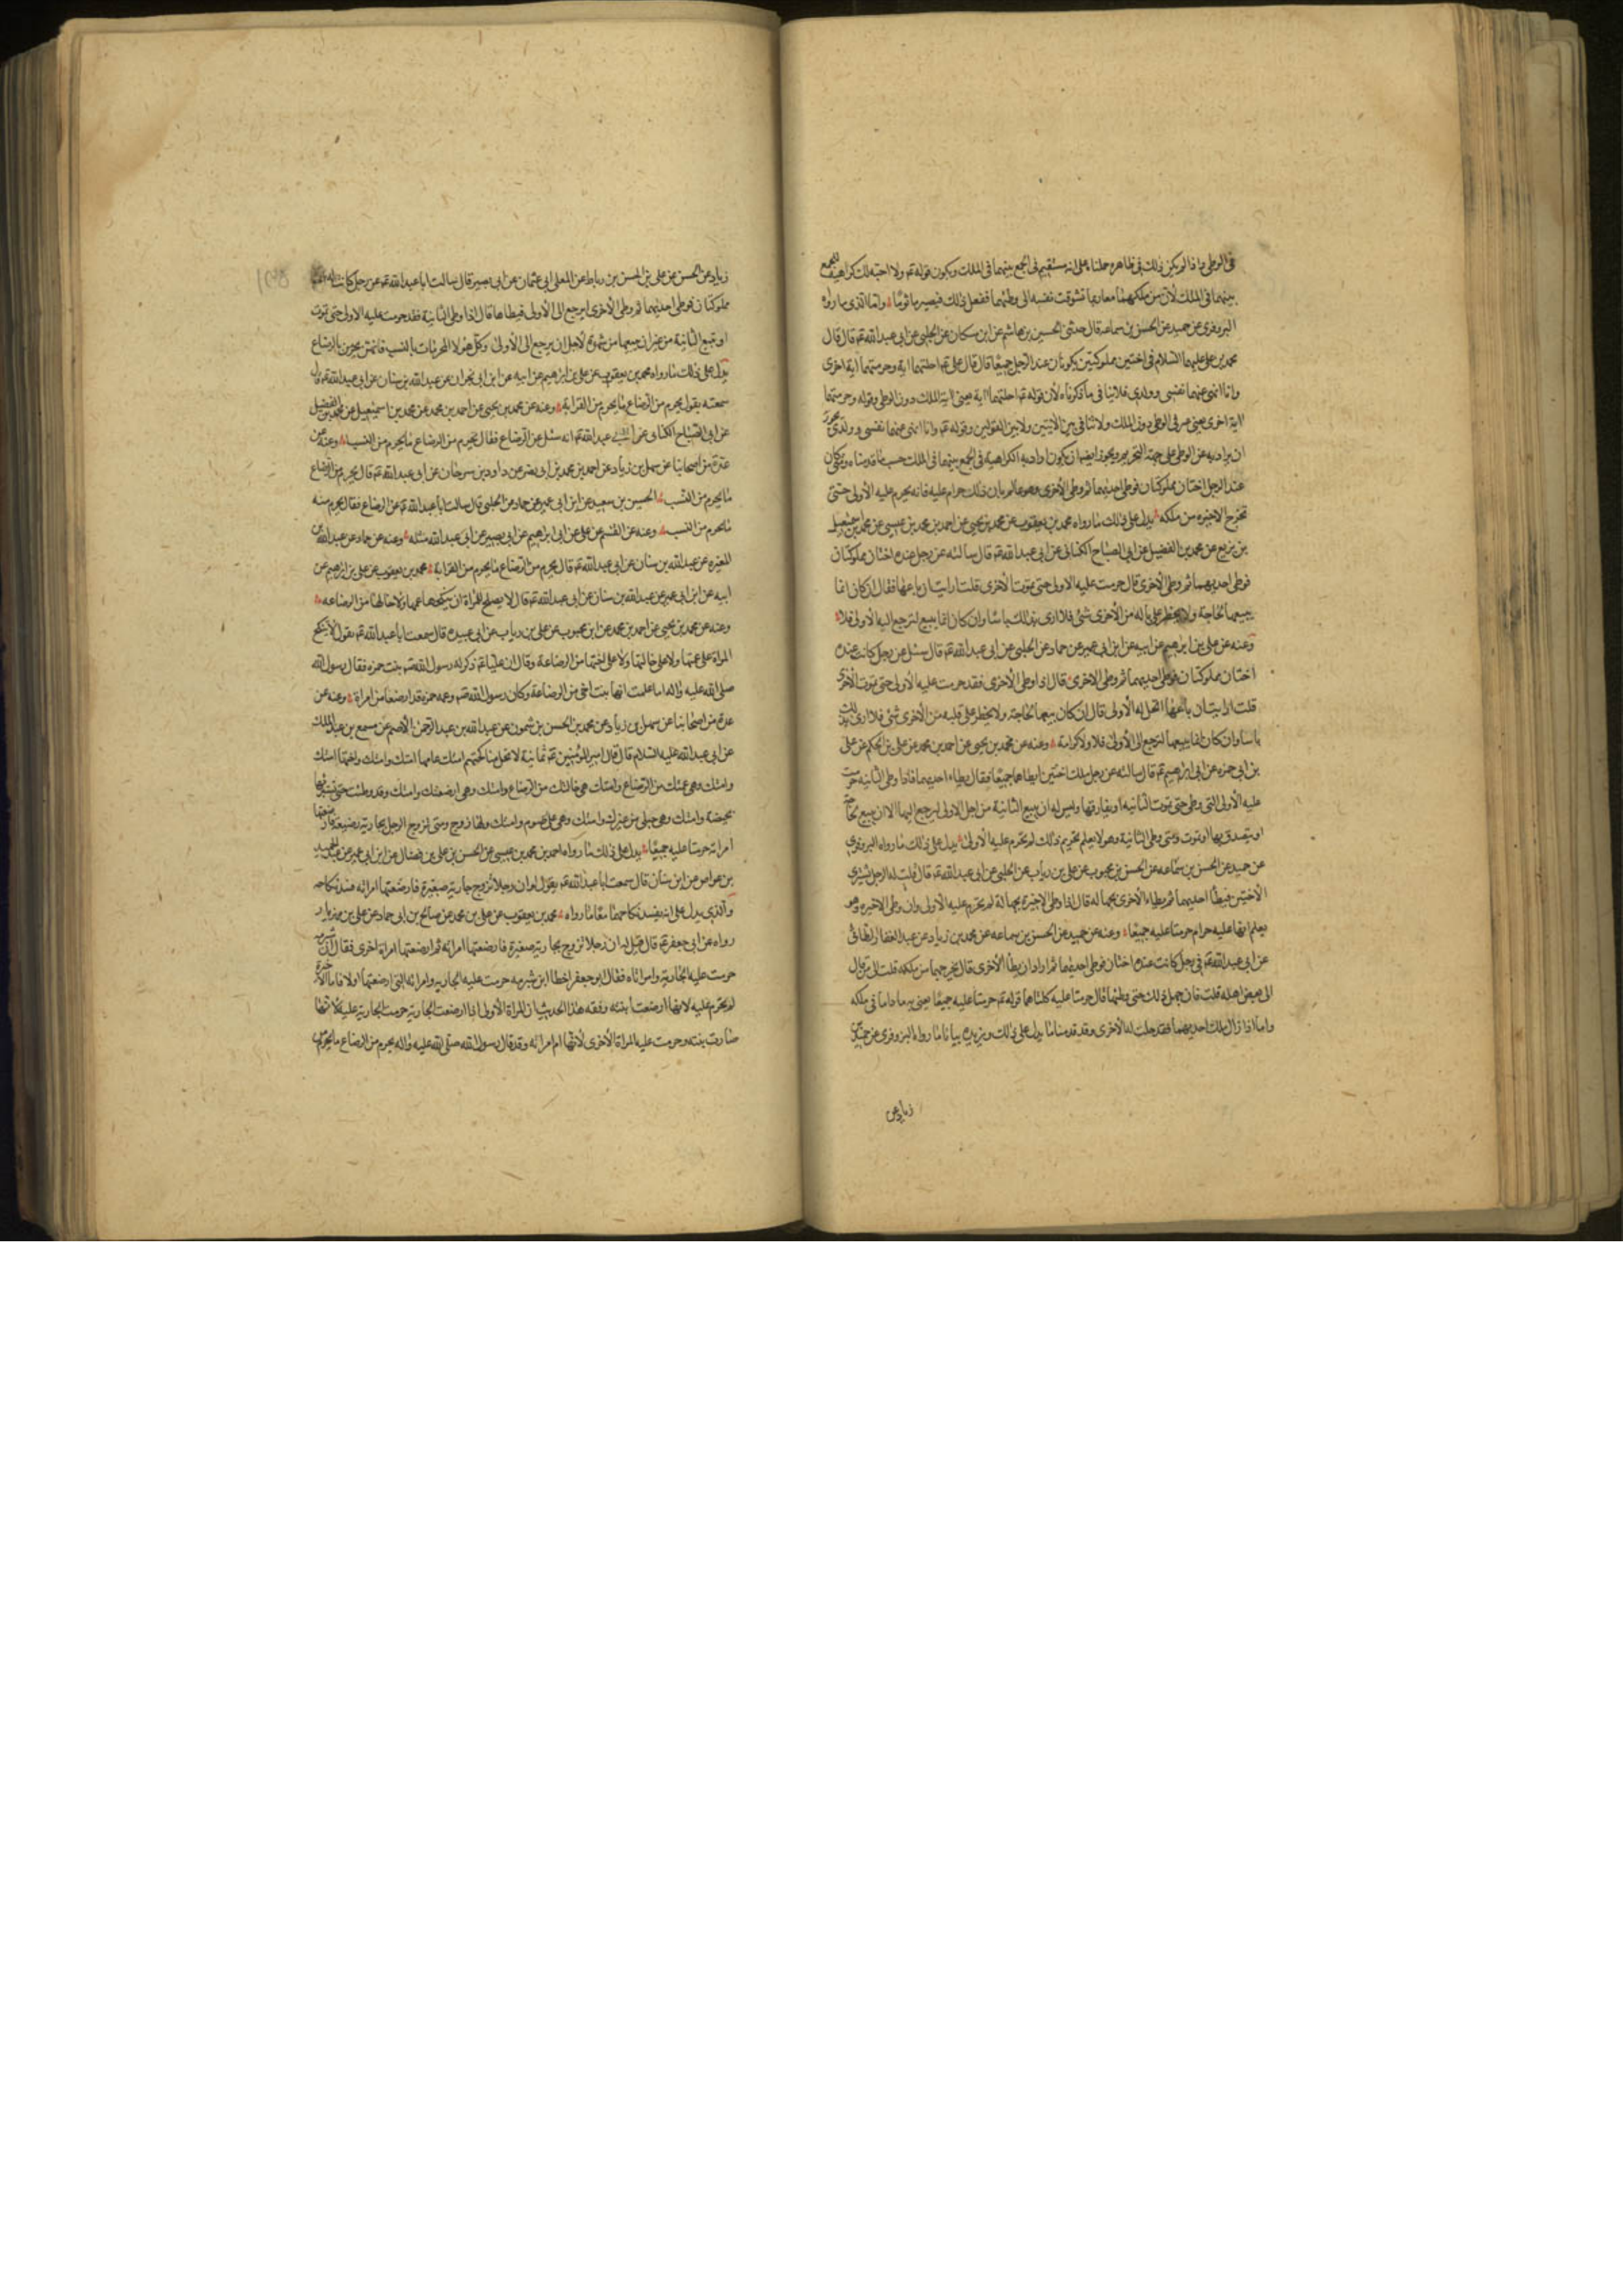 في الوطي واذا لم يكن ذلك في ظاهره حملناه على انه يستقيم في الجمع بينهما في الملك ويكون قوله ع ولا احبه لك كراهية للجمع
بينهما في الملك لأن من ملكهما معا ربما تشوقت نفسه الى وطئهما ففعل ذلك فيصير ماثوما واما الذي رواه
البزوفري عن حميد عن الحسن بن سماعه قال حدثني الحسين بن هاشم عن ابن مسكان عن الحلبي عن ابي عبد الله ع قال قال
محمد بن علي عليهما السلام في اختين مملوكتين يكونان عند الرجل جميعا قال قال علي ع احلتهما اية وحرمتهما اية اخرى
وانا انهى عنهما نفسي وولدي فلا ينافي ما ذكرناه لأن قوله ع احلتهما اية يعني اية الملك دون الوطي وقوله وحرمتهما
اية اخرى يعني في الوطي دون الملك ولا تنافي بين الآيتين ولا بين القولين وقوله ع وانا انهى عنهما نفسي وولدي يجوز
ان يراد به عن الوطي على جهة التحريم ويجوز ايضا ان يكون اراد به الكراهية في الجمع بينهما في الملك حسب ما قدمناه ومتى كان
عند الرجل اختان مملوكتان فوطي احديهما ثم وطي الأخرى وهو عالم بان ذلك حرام عليه فانه يحرم عليه الأولى حتى
تخرج الاخيره من ملكه يدل على ذلك ما رواه محمد بن يعقوب عن محمد بن يحيى عن احمد بن محمد بن عيسى عن محمد بن اسمعيل
بن بزيع عن محمد بن الفضيل عن ابي الصباح الكناني عن ابي عبد الله ع قال سالته عن رجل عنده اختان مملوكتان
فوطي احديهما ثم وطي الأخرى قال حرمت عليه الاولى حتى تموت الأخرى قلت ارايت ان باعها فقال ان كان انما
يبيعها لحاجة ولا يخطر على باله من الأخرى شئ فلا ارى بذلك باسا وان كان انما يبيع لترجع اليه الأولى فلا
وعنه عن علي بن ابرهيم عن ابيه عن ابن ابي عمير عن حماد عن الحلبي عن ابي عبد الله ع قال سئل عن رجل كانت عنده
اختان مملوكتان فوطي احديهما ثم وطي الاخرى قال اذا وطي الأخرى فقد حرمت عليه الأولى حتى تموت الأخرى
قلت ارايت ان باعها اتحل له الأولى قال ان كان يبيعها لحاجة ولا يخطر على قلبه من الأخرى شئ فلا ارى بذلك
باسا وان كان انما يبيعها لترجع الى الأولى فلا ولا كرامة وعنه عن محمد بن يحيى عن احمد بن محمد عن علي بن الحكم عن علي
بن ابي حمزه عن ابي ابرهيم ع قال سالته عن رجل ملك اختين ايطاهما جميعا فقال يطاء احديهما فاذا وطي الثانيه حرمت
عليه الأولى التي وطي حتى تموت الثانيه او يفارقها وليس له ان يبيع الثانية من اجل الاولى ليرجع اليها الا ان يبيع لحاجة
او يتصدق بها او تموت ومتى وطي الثانية وهو لا يعلم تحريم ذلك لم تحرم عليه الأولى يدل على ذلك ما رواه البزوفري
عن حميد عن الحسن بن سماعه عن الحسن بن محبوب عن علي بن رياب عن الحلبي عن ابي عبد الله ع قال قلت له الرجل يشتري
الأختين فيطا احديهما ثم يطاء الأخرى بجهالة قال اذا وطي الاخيرة بجهالة لم تحرم عليه الأولى وان وطي الاخيره وهو
يعلم انها عليه حرام حرمتا عليه جميعا وعنه عن حميد عن الحسن بن سماعه عن محمد بن زياد عن عبد الغفار الطائي
عن ابي عبد الله ع في رجل كانت عنده اختان فوطي احديهما ثم اراد ان يطأ الأخرى قال يخرجها من ملكه قلت الى من قال
الى بعض اهله قلت فان جهل ذلك حتى وطئها قال حرمتا عليه كلتاهما قوله ع حرمتا عليه جميعا يعني به ما داما في ملكه
واما اذا زال ملك احديهما فقد حلت له الأخرى وقد قدمنا ما يدل على ذلك ويزيده بيانا ما رواه البزوفري عن حميد بن
زياد عن
زياد عن الحسن عن علي بن الحسن بن رباط عن المعلى ابي عثمان عن ابي بصير قال سالت ابا عبد الله ع عن رجل كانت له اختان
مملوكتان فوطي احديهما ثم وطي الأخرى ايرجع الى الأولى فيطاها قال اذا وطي الثانية فقد حرمت عليه الاولى حتى تموت
او يبيع الثانية من غير ان يبيعها من شهوة لأجل ان يرجع الى الأولى وكل هؤلاء المحرمات بالنسب فانهن يحرمن بالرضاع
يدل على ذلك ما رواه محمد بن يعقوب عن علي بن ابرهيم عن ابيه عن ابن ابي نجران عن عبد الله بن سنان عن ابي عبد الله ع قال
سمعته يقول يحرم من الرضاع ما يحرم من القرابة وعنه عن محمد بن يحيى عن احمد بن محمد عن محمد بن اسمعيل عن محمد بن الفضيل
عن ابي الصباح الكناني عن ابي عبد الله ع انه سئل عن الرضاع فقال يحرم من الرضاع ما يحرم من النسب وعنه عن
عدة من اصحابنا عن سهل بن زياد عن احمد بن محمد بن ابي نصر عن داود بن سرحان عن ابي عبد الله ع قال يحرم من الرضاع
ما يحرم من النسب الحسين بن سعيد عن ابن ابي عمير عن حماد عن الحلبي قال سالت ابا عبد الله ع عن الرضاع فقال يحرم منه
ما يحرم من النسب وعنه عن القسم عن علي عن ابي ابراهيم عن ابي بصير عن ابي عبد الله مثله وعنه عن حماد عن عبد الله بن
المغيره عن عبد الله بن سنان عن ابي عبد الله ع قال يحرم من الرضاع ما يحرم من القرابة محمد بن يعقوب عن علي بن ابرهيم عن
ابيه عن ابن ابي عمير عن عبد الله بن سنان عن ابي عبد الله ع قال لا يصلح للمرأة ان ينكحها عمها ولا خالها من الرضاعه
وعنه عن محمد بن يحيى عن احمد بن محمد عن ابن محبوب عن علي بن رياب عن ابي عبيده قال سمعت ابا عبد الله ع يقول لا ينكح
المراة على عمتها ولا على خالتها ولا على اختها من الرضاعة وقال ان عليا ع ذكر له رسول الله ص بنت حمزه فقال رسول الله
صلى الله عليه واله اما علمت انها بنت اخي من الرضاعة وكان رسول الله ص وعمه حمزه قد ارضعا من امراة وعنه عن
عدة من اصحابنا عن سهل بن زياد عن محمد بن الحسن بن شمون عن عبد الله بن عبد الرحمن الأصم عن مسمع بن عبد الملك
عن ابي عبد الله عليه السلام قال قال امير المؤمنين ع ثمانية لا تحل مناكحتهم امتك امها امتك وامتك واختها امتك
وامتك وهي عمتك من الرضاع وامتك هي خالتك من الرضاع وامتك وهي ارضعتك وامتك وقد وطئت حتى تستبرئها
بحيضة وامتك وهي حبلى من غيرك وامتك وهي على سوم وامتك ولها زوج ومتى تزوج الرجل بجارية رضيعة فارضعتها
امراته حرمتا عليه جميعا يدل على ذلك ما رواه احمد بن محمد بن عيسى عن الحسن بن علي بن فضال عن ابن ابي عمير عن عبد الحميد
بن عواض عن ابن سنان قال سمعت ابا عبد الله ع يقول لو ان رجلا تزوج جارية صغيرة فارضعتها امراته فسد نكاحه
والذي يدل على انه يفسد نكاحهما معا ما رواه محمد بن يعقوب عن علي بن محمد عن صالح بن ابي حماد عن علي بن مهزيار
رواه عن ابي جعفر ع قال قيل له ان رجلا تزوج بجارية صغيرة فارضعتها امراته ثم ارضعتها امراة اخرى فقال ابن شبرمه
حرمت عليه الجارية وامراتاه فقال ابو جعفر اخطا ابن شبرمه حرمت عليه الجارية وامراته التي ارضعتها اولا فاما الاخيرة
لم تحرم عليه لانها ارضعت ابنته وفقه هذا الحديث ان المراة الأولى اذا ارضعت الجارية حرمت الجارية عليه لأنها
صارت بنته وحرمت عليه المراة الأخرى لأنها ام امراته وقد قال رسول الله صلى الله عليه واله يحرم من الرضاع ما يحرم من